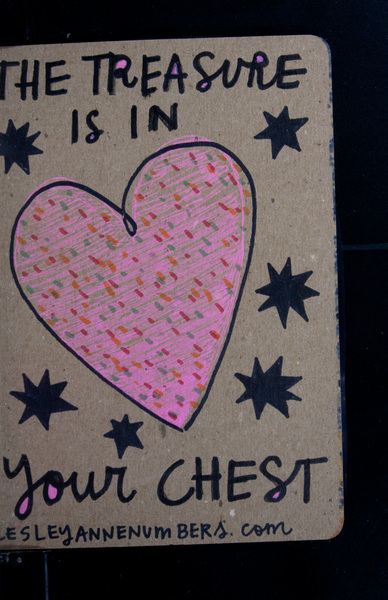 THE TREASURE
IS IN
Your CHEST
LESLEYANNENUMBERS.com